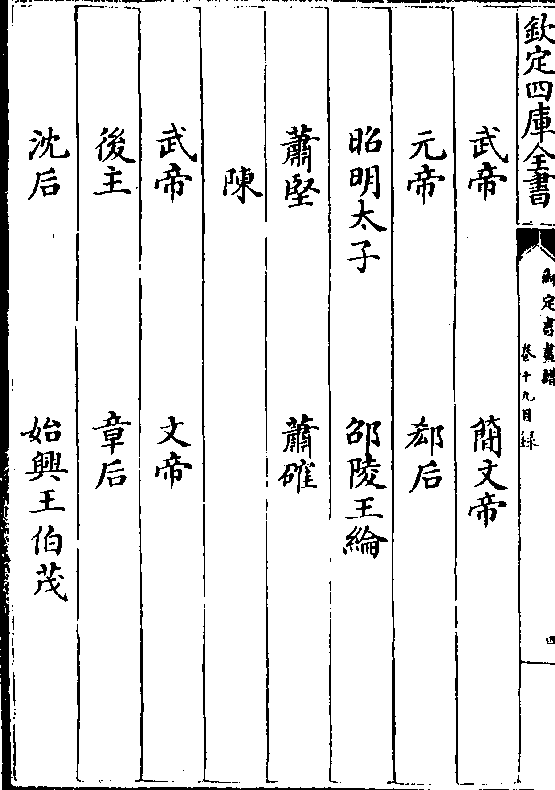 欽定四庫全書
御定書畫譜
卷十九目錄
四
武帝 簡文帝
元帝 郗后
昭明太子 邵陵王綸
蕭堅 蕭確
陳
武帝 文帝
後主 章后
沈后 始興王伯茂